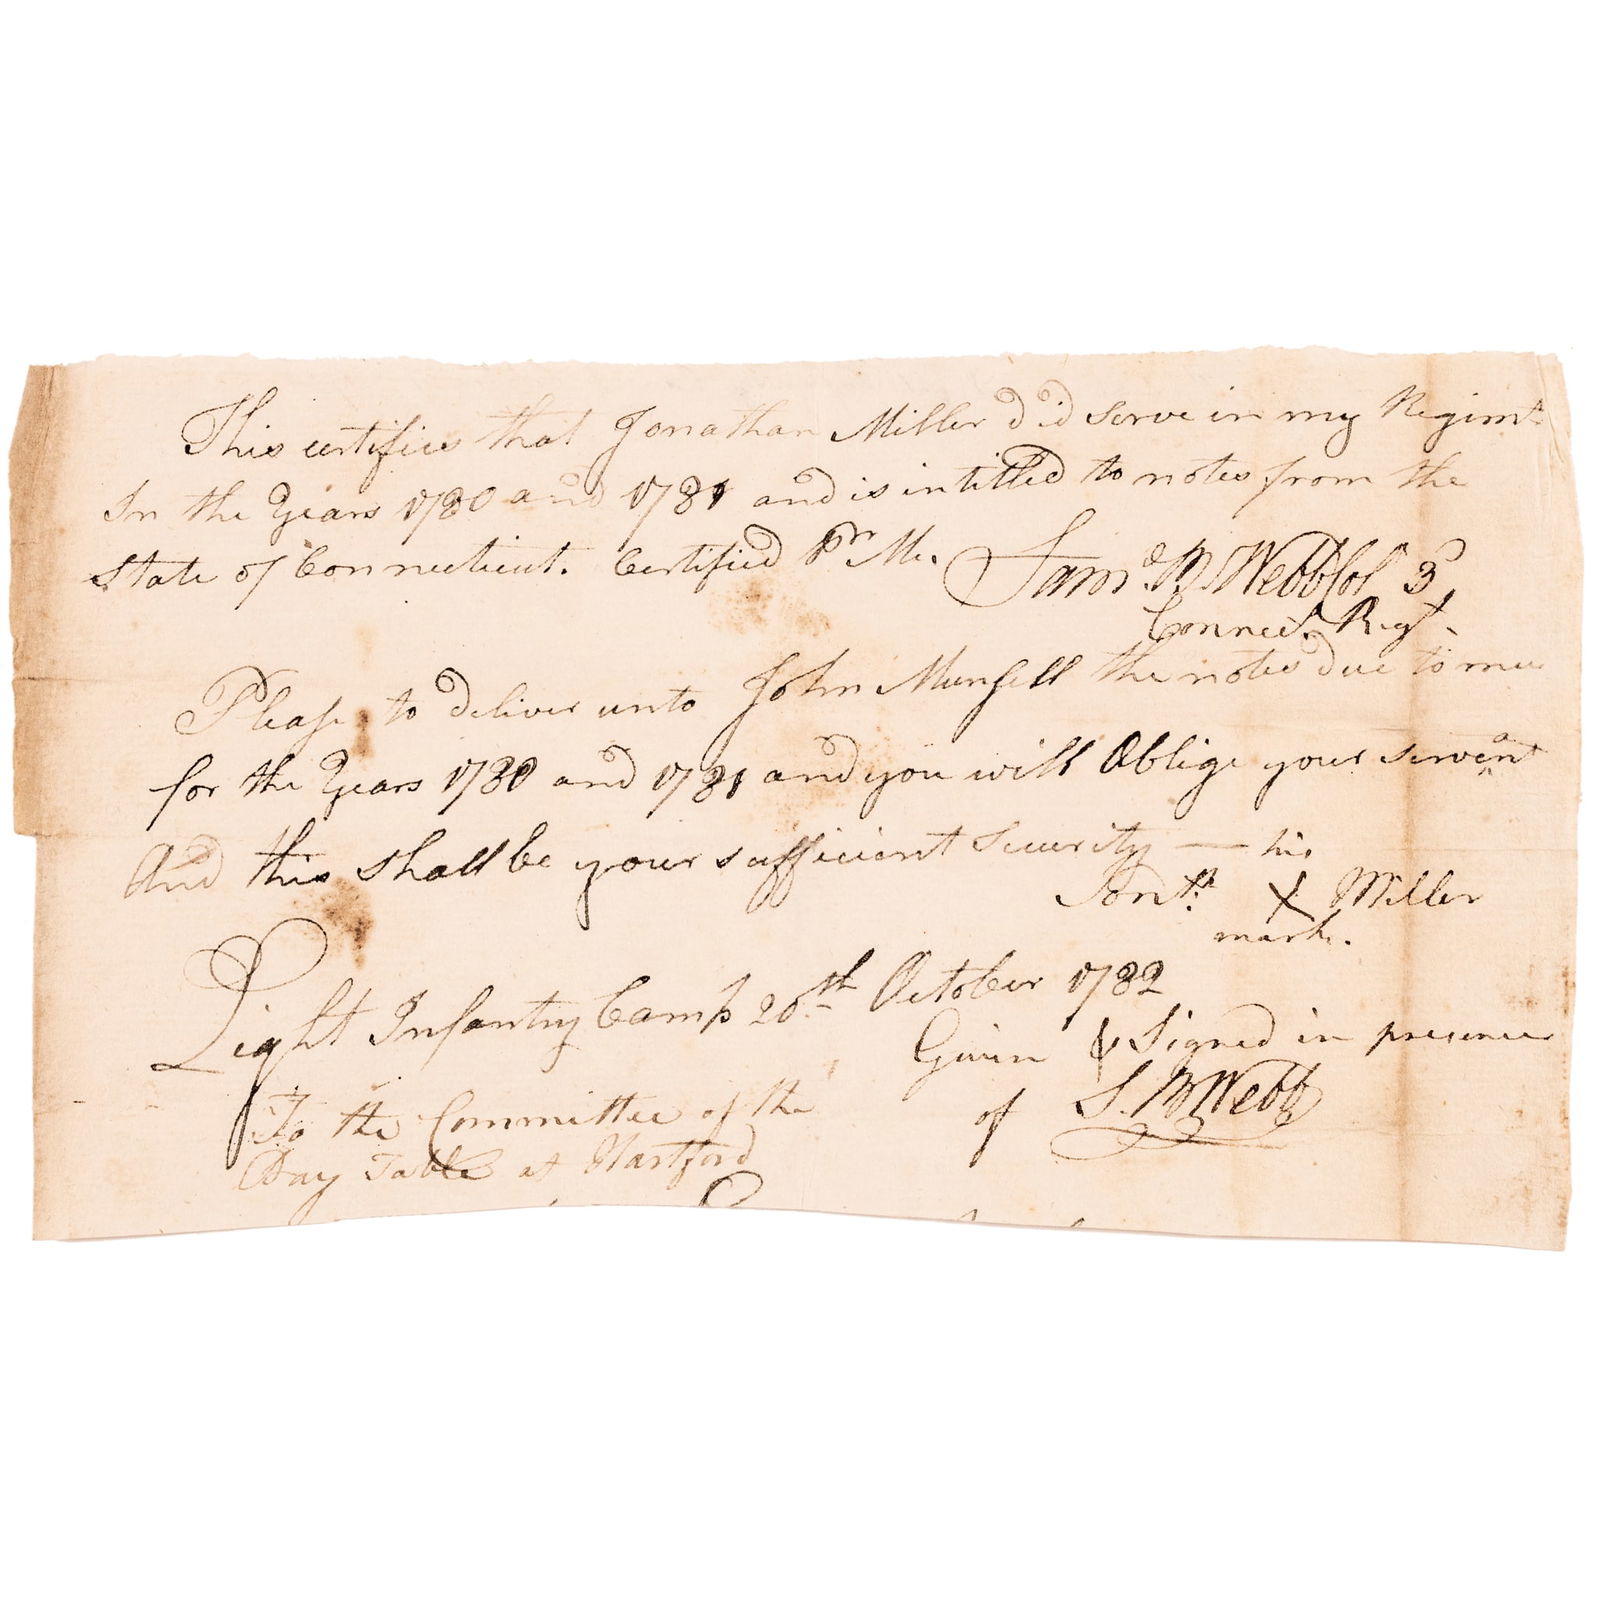 This certifies that Jonathan Miller did serve in my Regimt
In the Years 1780 and 1781 and is intitled to notes from the
State of Connecticut. Certified Pr Me. Saml. B Webb Col 3d
Connect. Regt.
Please to deliver unto John Munsell the notes due to mee
for the Years 1780 and 1781 and you will Oblige your servant
And this shall be your sufficient Security — his
Jonth. X Miller
mark.
Light Infantry Camp 20th October 1782
Given & Signed in presence
of S. B Webb
To the Committee of the
Pay Table at Hartford